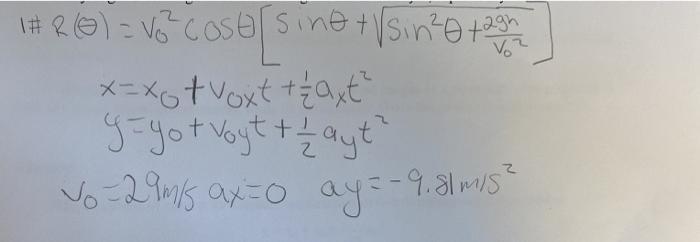 1# R(θ) = v₀² cosθ [sinθ + √(sin²θ + 2gh/v₀²)]
x = x₀ + v₀ₓt + ½aₓt²
y = y₀ + v₀yt + ½ayt²
v₀ = 29m/s ax = 0 ay = -9.81m/s²